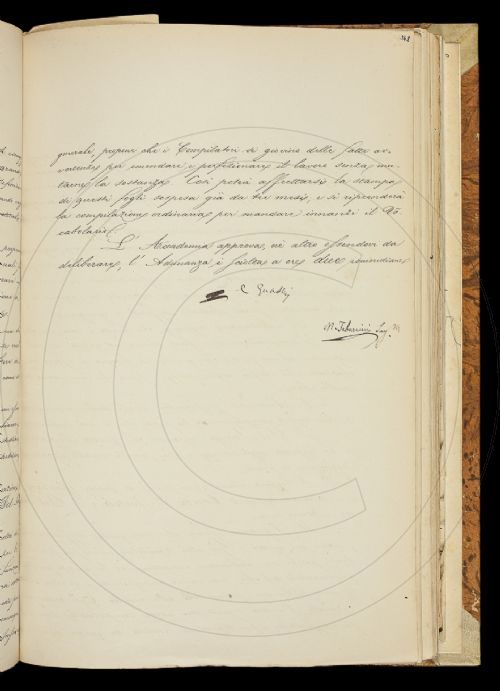 348
generale, propone che i Compilatori si giovino delle fatte av-
vertenze per emendare e perfezionare il lavoro senza mu-
tarne la sostanza. Così potrà affrettarsi la stampa
di questi fogli sospesa già da tre mesi, e si riprenderà
la compilazione ordinaria per mandare innanzi il Vo-
cabolario.
L'Accademia approva, nè altro essendovi da
deliberare, l'Adunanza è sciolta a ore due pomeridiane
M. Tabarrini Seg.